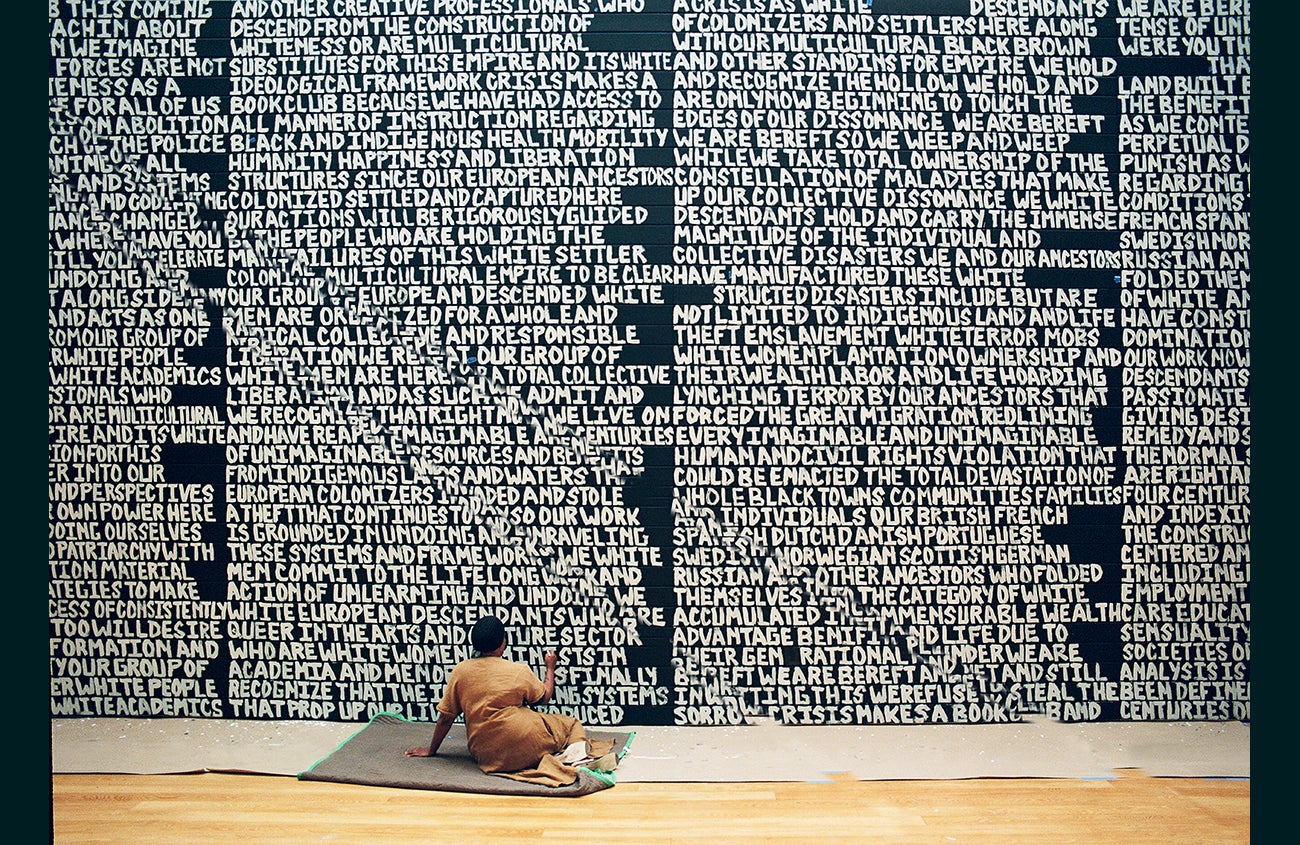 THIS COMING
ACHIN ABOUT
N WE IMAGINE
FORCES ARE NOT
ENESS AS A
FOR ALL OF US
ION ABOLITION
OF THE POLICE
ALL
AND SYSTEMS
AND CODIFYING
CHANGED
WHERE HAVE YOU
ILL YOU
UNDOING
T ALONGSIDE
ND ACTS AS ONE
OM OUR GROUP OF
R WHITE PEOPLE
WHITE ACADEMICS
SIONALS WHO
OR ARE MULTICULTURAL
IRE AND ITS WHITE
ION FOR THIS
ER INTO OUR
AND PERSPECTIVES
OWN POWER HERE
OING OURSELVES
PATRIARCHY WITH
TION MATERIAL
TEGIES TO MAKE
CESS OF CONSISTENTLY
TOO WILL DESIRE
FORMATION AND
YOUR GROUP OF
ER WHITE PEOPLE
WHITE ACADEMICS
AND OTHER CREATIVE PROFESSIONALS WHO
DESCEND FROM THE CONSTRUCTION OF
WHITENESS OR ARE MULTICULTURAL
SUBSTITUTES FOR THIS EMPIRE AND ITS WHITE
IDEOLOGICAL FRAMEWORK CRISIS MAKES A
BOOK CLUB BECAUSE WE HAVE HAD ACCESS TO
ALL MANNER OF INSTRUCTION REGARDING
BLACK AND INDIGENOUS HEALTH MOBILITY
HUMANITY HAPPINESS AND LIBERATION
STRUCTURES SINCE OUR EUROPEAN ANCESTORS
COLONIZED SETTLED AND CAPTURED HERE
OUR ACTIONS WILL BE RIGOROUSLY GUIDED
BY THE PEOPLE WHO ARE HOLDING THE
MANY FAILURES OF THIS WHITE SETTLER
COLONIAL MULTICULTURAL EMPIRE TO BE CLEAR
OUR GROUP OF EUROPEAN DESCENDED WHITE
MEN ARE ORGANIZED FOR A WHOLE AND
COLLECTIVE AND RESPONSIBLE
LIBERATION WE REPEAT OUR GROUP OF
WHITE MEN ARE HERE FOR A TOTAL COLLECTIVE
LIBERATION AND AS SUCH WE ADMIT AND
WE RECOGNIZE THAT RIGHT NOW WE LIVE ON
AND HAVE REAPED IMAGINABLE AND CENTURIES
OF UNIMAGINABLE RESOURCES AND BENEFITS
FROM INDIGENOUS LANDS AND WATERS THAT
EUROPEAN COLONIZERS INVADED AND STOLE
A THEFT THAT CONTINUES TODAY SO OUR WORK
IS GROUNDED IN UNDOING AND UNRAVELING
THESE SYSTEMS AND FRAMEWORKS WE WHITE
MEN COMMIT TO THE LIFELONG WORK AND
ACTION OF UNLEARNING AND UNDOING WE
WHITE EUROPEAN DESCENDANTS WHO ARE
QUEER IN THE ARTS AND CULTURE SECTOR
WHO ARE WHITE WOMEN IN
ACADEMIA AND FINALLY
RECOGNIZE THAT THE SYSTEMS
THAT PROP UP OUR PRODUCED
A CRISIS AS WHITE DESCENDANTS
OF COLONIZERS AND SETTLERS HERE ALONG
WITH OUR MULTICULTURAL BLACK BROWN
AND OTHER STANDINS FOR EMPIRE WE HOLD
AND RECOGNIZE THE HOLLOW WE HOLD AND
ARE ONLY NOW BEGINNING TO TOUCH THE
EDGES OF OUR DISSONANCE WE ARE BEREFT
WE ARE BEREFT SO WE WEEP AND WEEP
WHILE WE TAKE TOTAL OWNERSHIP OF THE
CONSTELLATION OF MALADIES THAT MAKE
UP OUR COLLECTIVE DISSONANCE WE WHITE
DESCENDANTS HOLD AND CARRY THE IMMENSE
MAGNITUDE OF THE INDIVIDUAL AND
COLLECTIVE DISASTERS WE AND OUR ANCESTORS
HAVE MANUFACTURED THESE WHITE
STRUCTED DISASTERS INCLUDE BUT ARE
NOT LIMITED TO INDIGENOUS LAND AND LIFE
THEFT ENSLAVEMENT WHITE TERROR MOBS
WHITE WOMEN PLANTATION OWNERSHIP AND
THEIR WEALTH LABOR AND LIFE HOARDING
LYNCHING TERROR BY OUR ANCESTORS THAT
FORCED THE GREAT MIGRATION REDLINING
EVERY IMAGINABLE AND UNIMAGINABLE
HUMAN AND CIVIL RIGHTS VIOLATION THAT
COULD BE ENACTED THE TOTAL DEVASTATION OF
WHOLE BLACK TOWNS COMMUNITIES FAMILIES
AND INDIVIDUALS OUR BRITISH FRENCH
SPANISH DUTCH DANISH PORTUGUESE
SWEDISH NORWEGIAN SCOTTISH GERMAN
RUSSIAN AND OTHER ANCESTORS WHO FOLDED
THEMSELVES INTO THE CATEGORY OF WHITE
ACCUMULATED IMMENSURABLE WEALTH
ADVANTAGE BENIFIT AND LIFE DUE TO
THEIR GENERATIONAL PLUNDER WE ARE
BEREFT WE ARE BEREFT AND STILL
IN WRITING THIS WE REFUSE TO STEAL THE
SORROW CRISIS MAKES A BOOK BAND
WE ARE BERE
TENSE OF UN
WERE YOU TH
THA
LAND BUILT B
THE BENEFIT
AS WE CONTE
PERPETUAL D
PUNISH AS W
REGARDING
CONDITIONS
FRENCH SPAN
SWEDISH NOR
RUSSIAN AN
FOLDED THEM
OF WHITE AN
HAVE CONST
DOMINATION
OUR WORK NOW
DESCENDANTS
PASSIONATE
GIVING DESI
REMEDY AND S
THE NORMALS
ARE RIGHT AN
FOUR CENTUR
AND INDEXIN
THE CONSTRU
CENTERED AN
INCLUDING
EMPLOYMENT
CARE EDUCAT
SENSUALITY
SOCIETIES O
ANALYSIS IS
BEEN DEFINE
CENTURIES D